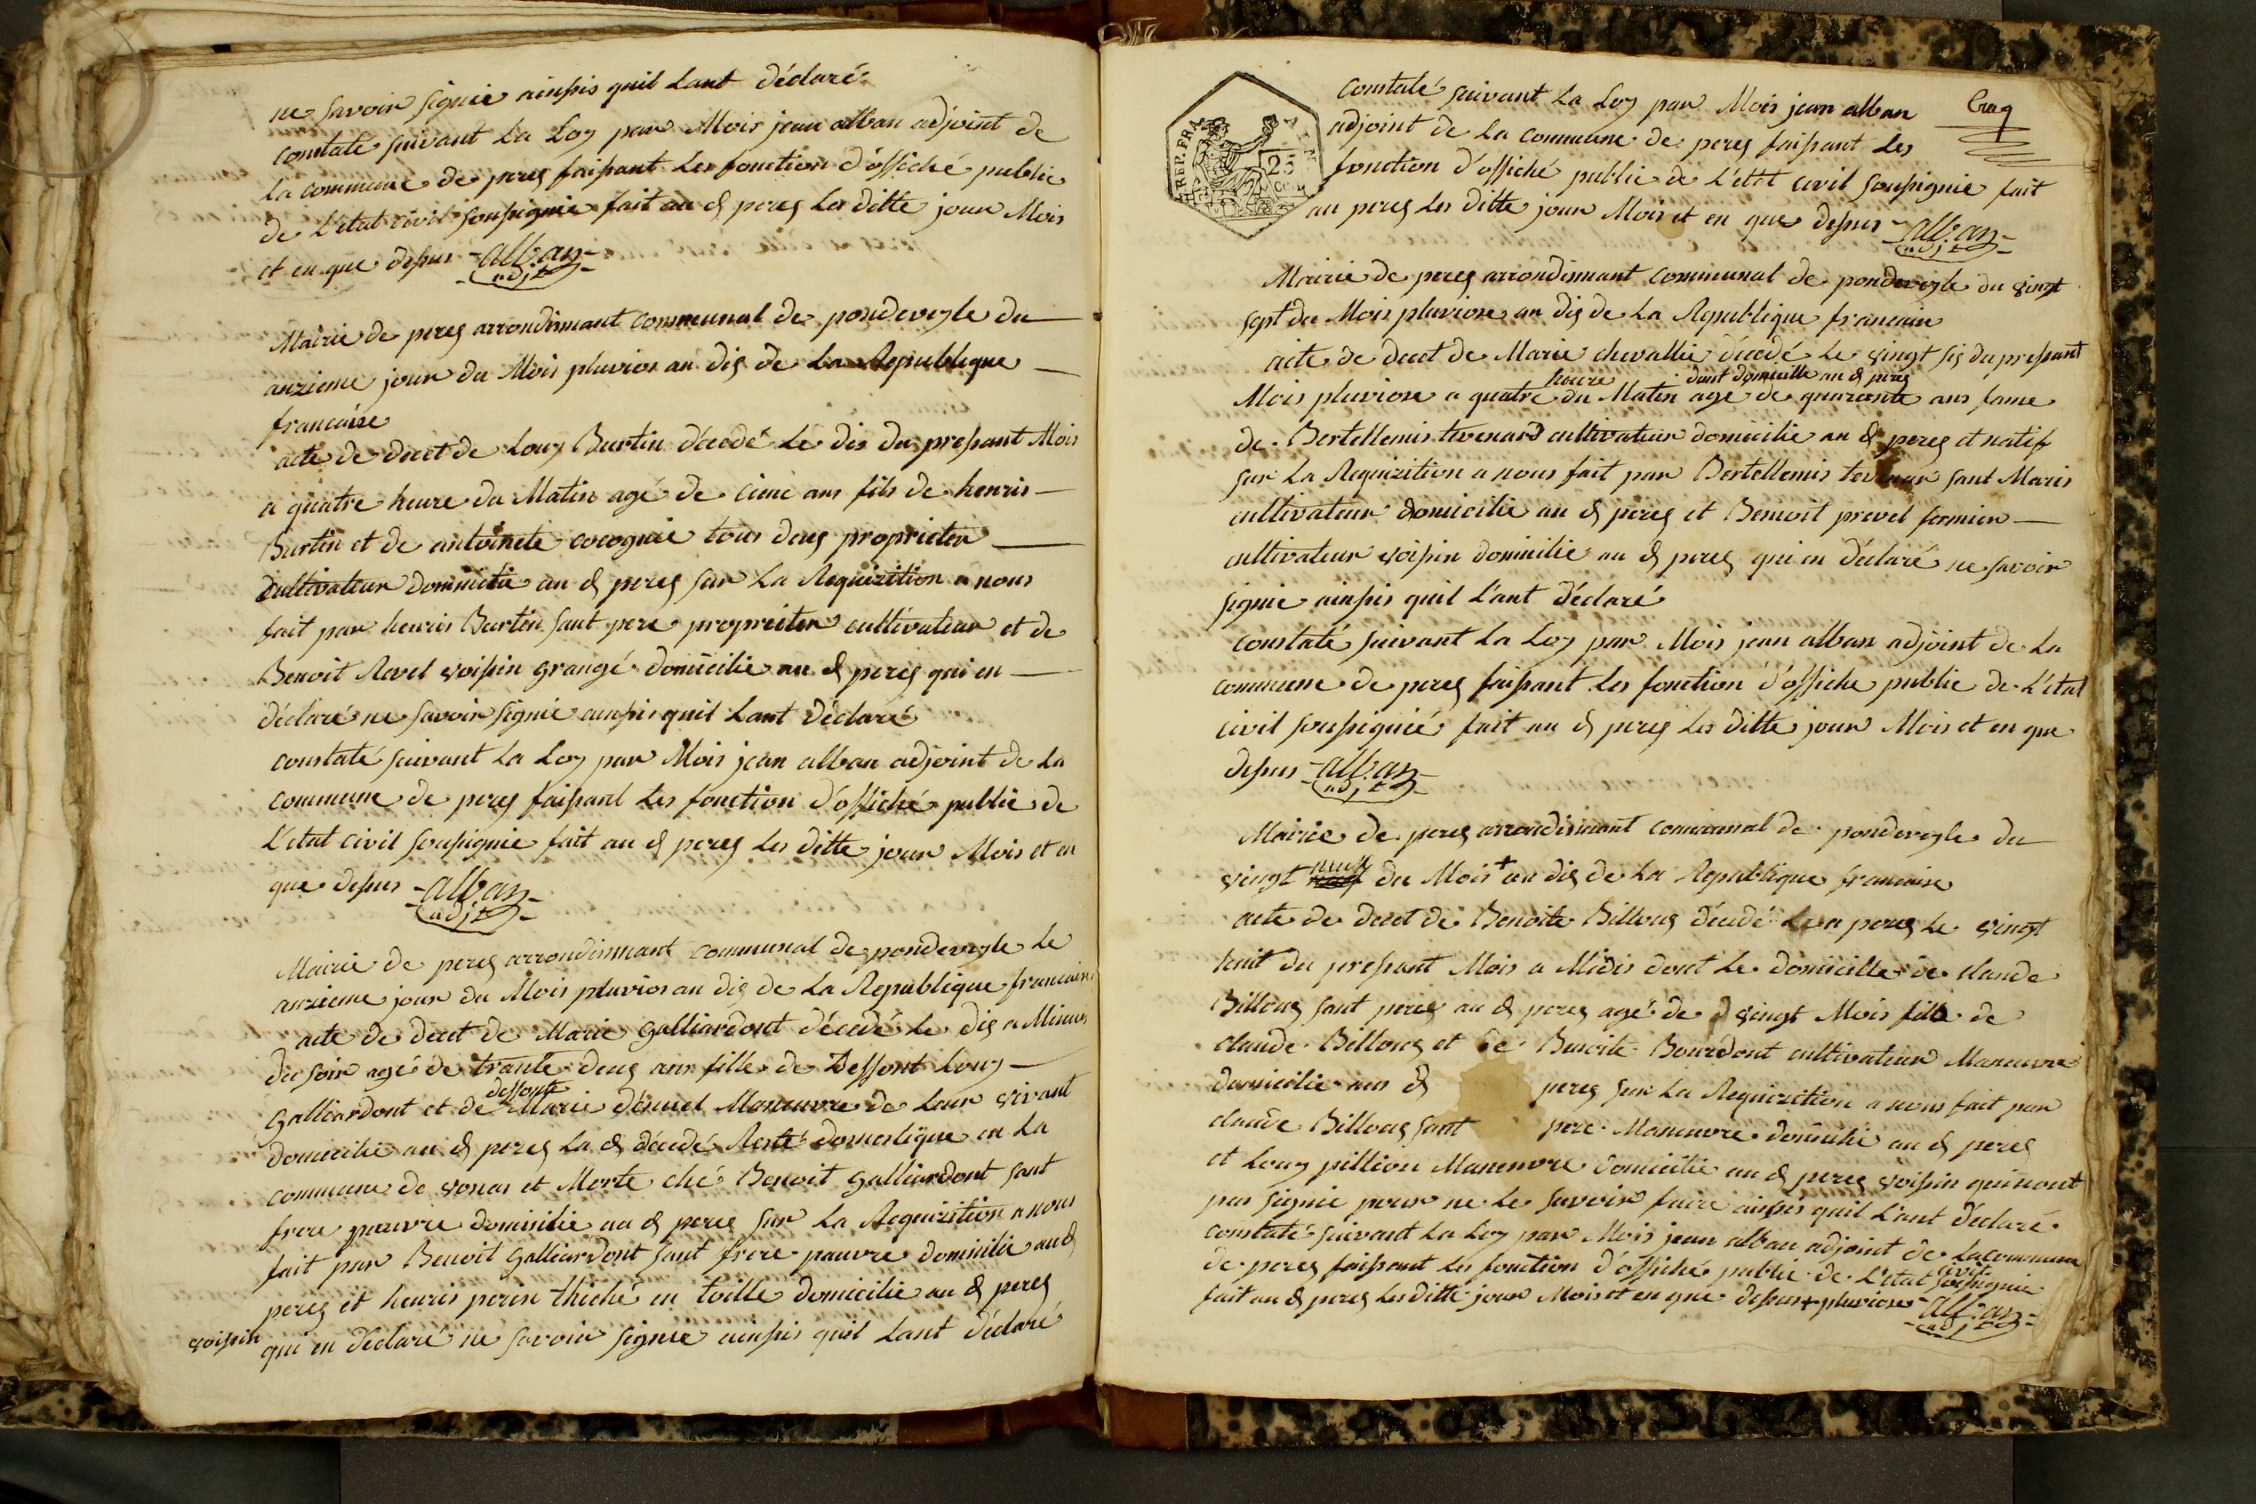 ne savoir signie ainssis quil Lant déclaré
constaté suivant La Loy par Mois jean alban adjoint de
La commune de perex faissant Les fonction d'offiché public
de L'etat civil soussignie fait au d perex Les ditte jour Mois
et en que dessus alban
adjt
Mairie de perex arrondismant communal de pondeveyle du
anzieme jour du Mois pluvios an dix de La Republique
francaise
acte de decet de Louy Burtin décedé Le dix du pressant Mois
a quatre heure du Matin agé de cienc ans fils de henris
Burtin et de antoinete cocognie tous deux proprieter
cultivateur domicilie au d perex sur La Requizition a nous
fait par henris Burtin sant pere proprieter cultivateur et de
Benoit Revel voissin grangé domicilie au d perex qui en
déclaré ne savoir signie ainssis quil Lant déclaré
constaté suivant La Loy par Mois jean alban adjoint de La
commune de perex faissant Les fonction d'offiché public de
L'etat civil soussignie fait au d perex Les ditte jour Mois et en
que dessus alban
adjt
Mairie de perex arrondismant communal de pondeveyle Le
anzieme jour du Mois pluvios an dix de La Republique francaine
acte de decet de Marie Galliardont décedé Le dix a Minuis
du soir agé de trante deux ans fille de Deffont Louy
deffonte
Galliardont et de Marie dénuel Maneuvre de Leur vivant
domicilie au d perex La d décedé Resté domestique en La
commune de vonas et Morte ché Benoit Galliardont sant
frere pauvre domicilie au d perex sur La Requizition a nous
fait par Benoit Galliardont sant frere pauvre domicilie au d
perex et henris perin thiché en toille domicilie au d perex
voissin qui en déclaré ne savoir signie ainssis quil Lant déclaré
REP. FRA
25
constaté suivant La Loy par Mois jean alban
adjoint de La commune de perex faissant Les
fonction d'offiché public de L'etat civil soussignie fait
au perex Les ditte jour Mois et en que dessus alban
adjt
Mairie de perex arrondismant communal de pondeveyle du vingt
sept du Mois pluviose an dix de La Republique francain
acte de decet de Marie chevallie décedé Le vingt six du pressant
heure dont domicille au d perex
Mois pluviose a quatre du Matin agé de quarante ans fame
de Bertellemis tevenard cultivateur domicilie au d perex et natif
sur La Requizition a nous fait par Bertellemis sant Maris
cultivateur domicilie au d perex et Benoit prevel fermier
cultivateur voissin domicilie au d perex qui en déclaré ne savoir
signie ainssis quil L'ant déclaré
constaté suivant La Loy par Mois jean alban adjoint de La
commune de perex faissant Les fonction d'offiche public de L'etat
civil soussignié fait au d perex Les ditte jour Mois et en que
dessus alban
adjt
Mairie de perex arrondismant communal de pondeveyle du
neuf
vingt du Mois + an dix de La Republique francaise
acte de decet de Benoite Billoux décedé a perex Le vingt
huit du pressant Mois a Midis dont Le domicille de claude
Billoux sant perex au d perex agé de vingt Mois fille de
claude Billoux et de Benoite Bourdont cultivateur Maneuvre
domicilie aus d perex sur La Requizition a nous fait par
claude Billoux sant pere Maneuvre domicilie au d perex
et Louy pittion Maneuvre domicilie au d perex voissin qui nont
pas signie pour ne Le savoir faire ainssis quil L'ant déclaré
constaté suivant La Loy par Mois jean alban adjoint de La commune
de perex faissant Les fonction d'offiché public de L'etat civil soussignie
fait au d perex Les ditte jour Mois et en que dessus + pluviose alban
adjt